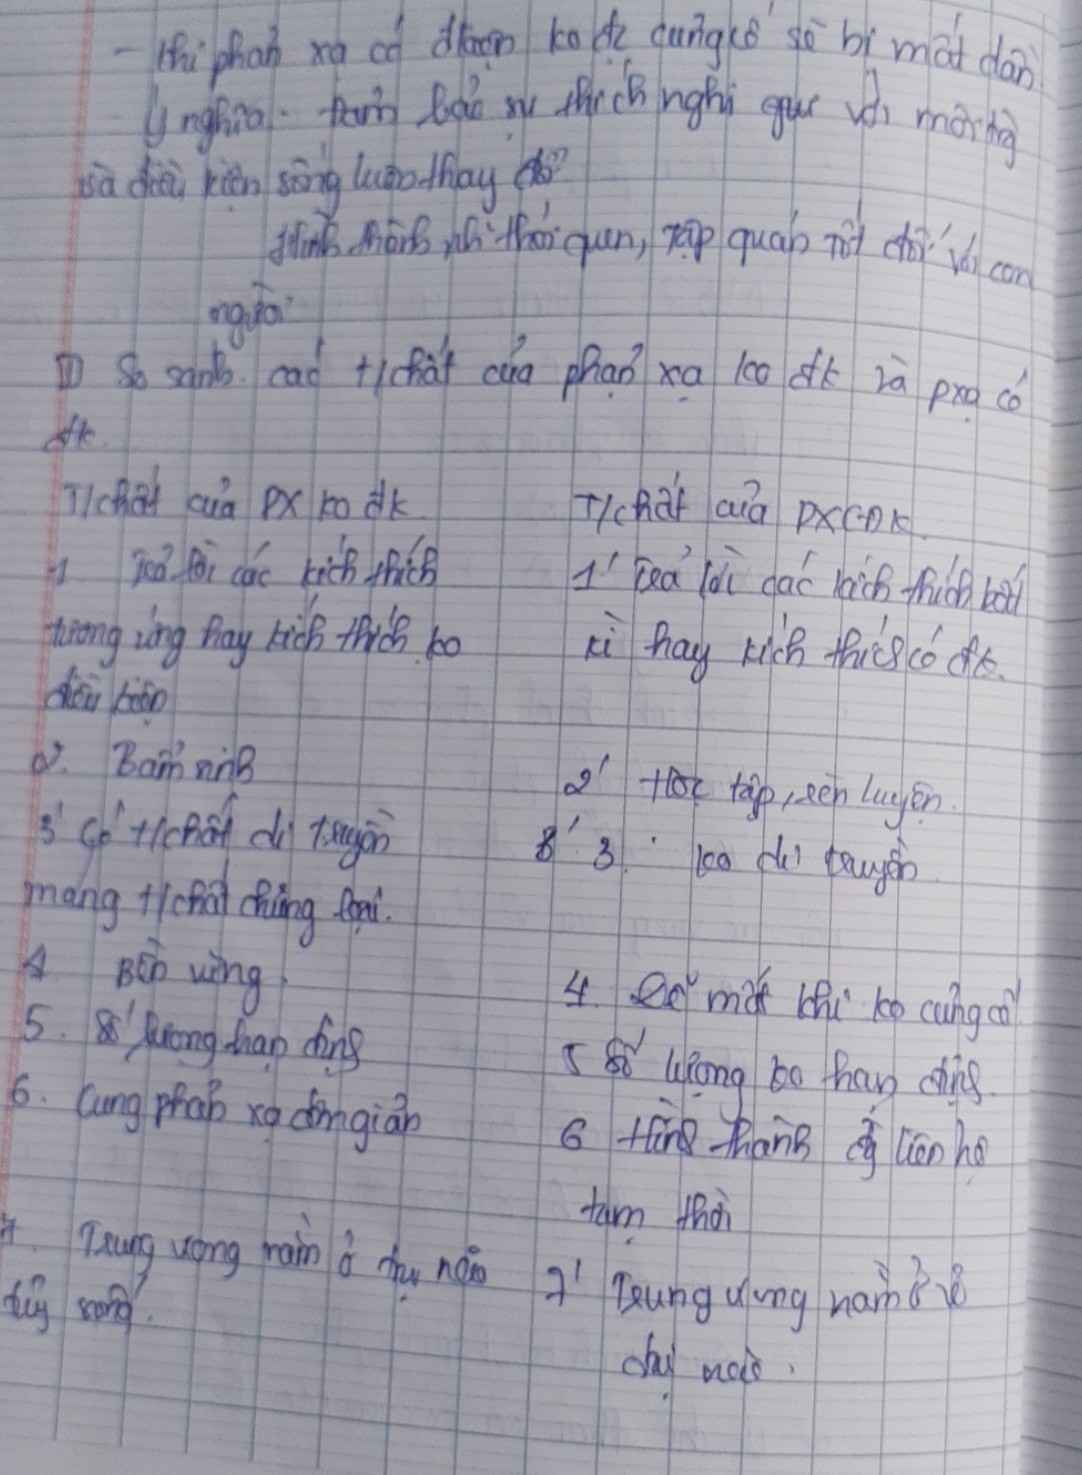 - thì phản xạ có đkiện ko đc củng cố sẽ bị mất dần
Ý nghĩa: Đảm bảo sự thích nghi với môi trg
và điều kiện sống luôn thay đổi
Hình thành thói quen, tập quán tốt đối với con
người
III So sánh các t/chất của phản xạ ko đk và pxạ có
đk.
T/chất của PX ko đk
1 Trả lời các kích thích
tương ứng hay kích thích ko
điều kiện
2. Bẩm sinh
3 Có t/chất di truyền
mang t/chất chủng loại.
4 Bền vững
5. Số lượng hạn định
6. Cung phản xạ đơn giản
7. Trung ương nằm ở trụ não
tủy sống.
T/chất của PXCĐK
1' Trả lời các kích thích bất
kì hay kích thích có đk.
2' Học tập, rèn luyện.
3' 3. ko di truyền
4. Dễ mất khi ko củng cố
5 Số lượng ko hạn định
6 Hình thành đg liên hệ
tạm thời
7' Trung ương nằm ở vỏ
đại não.